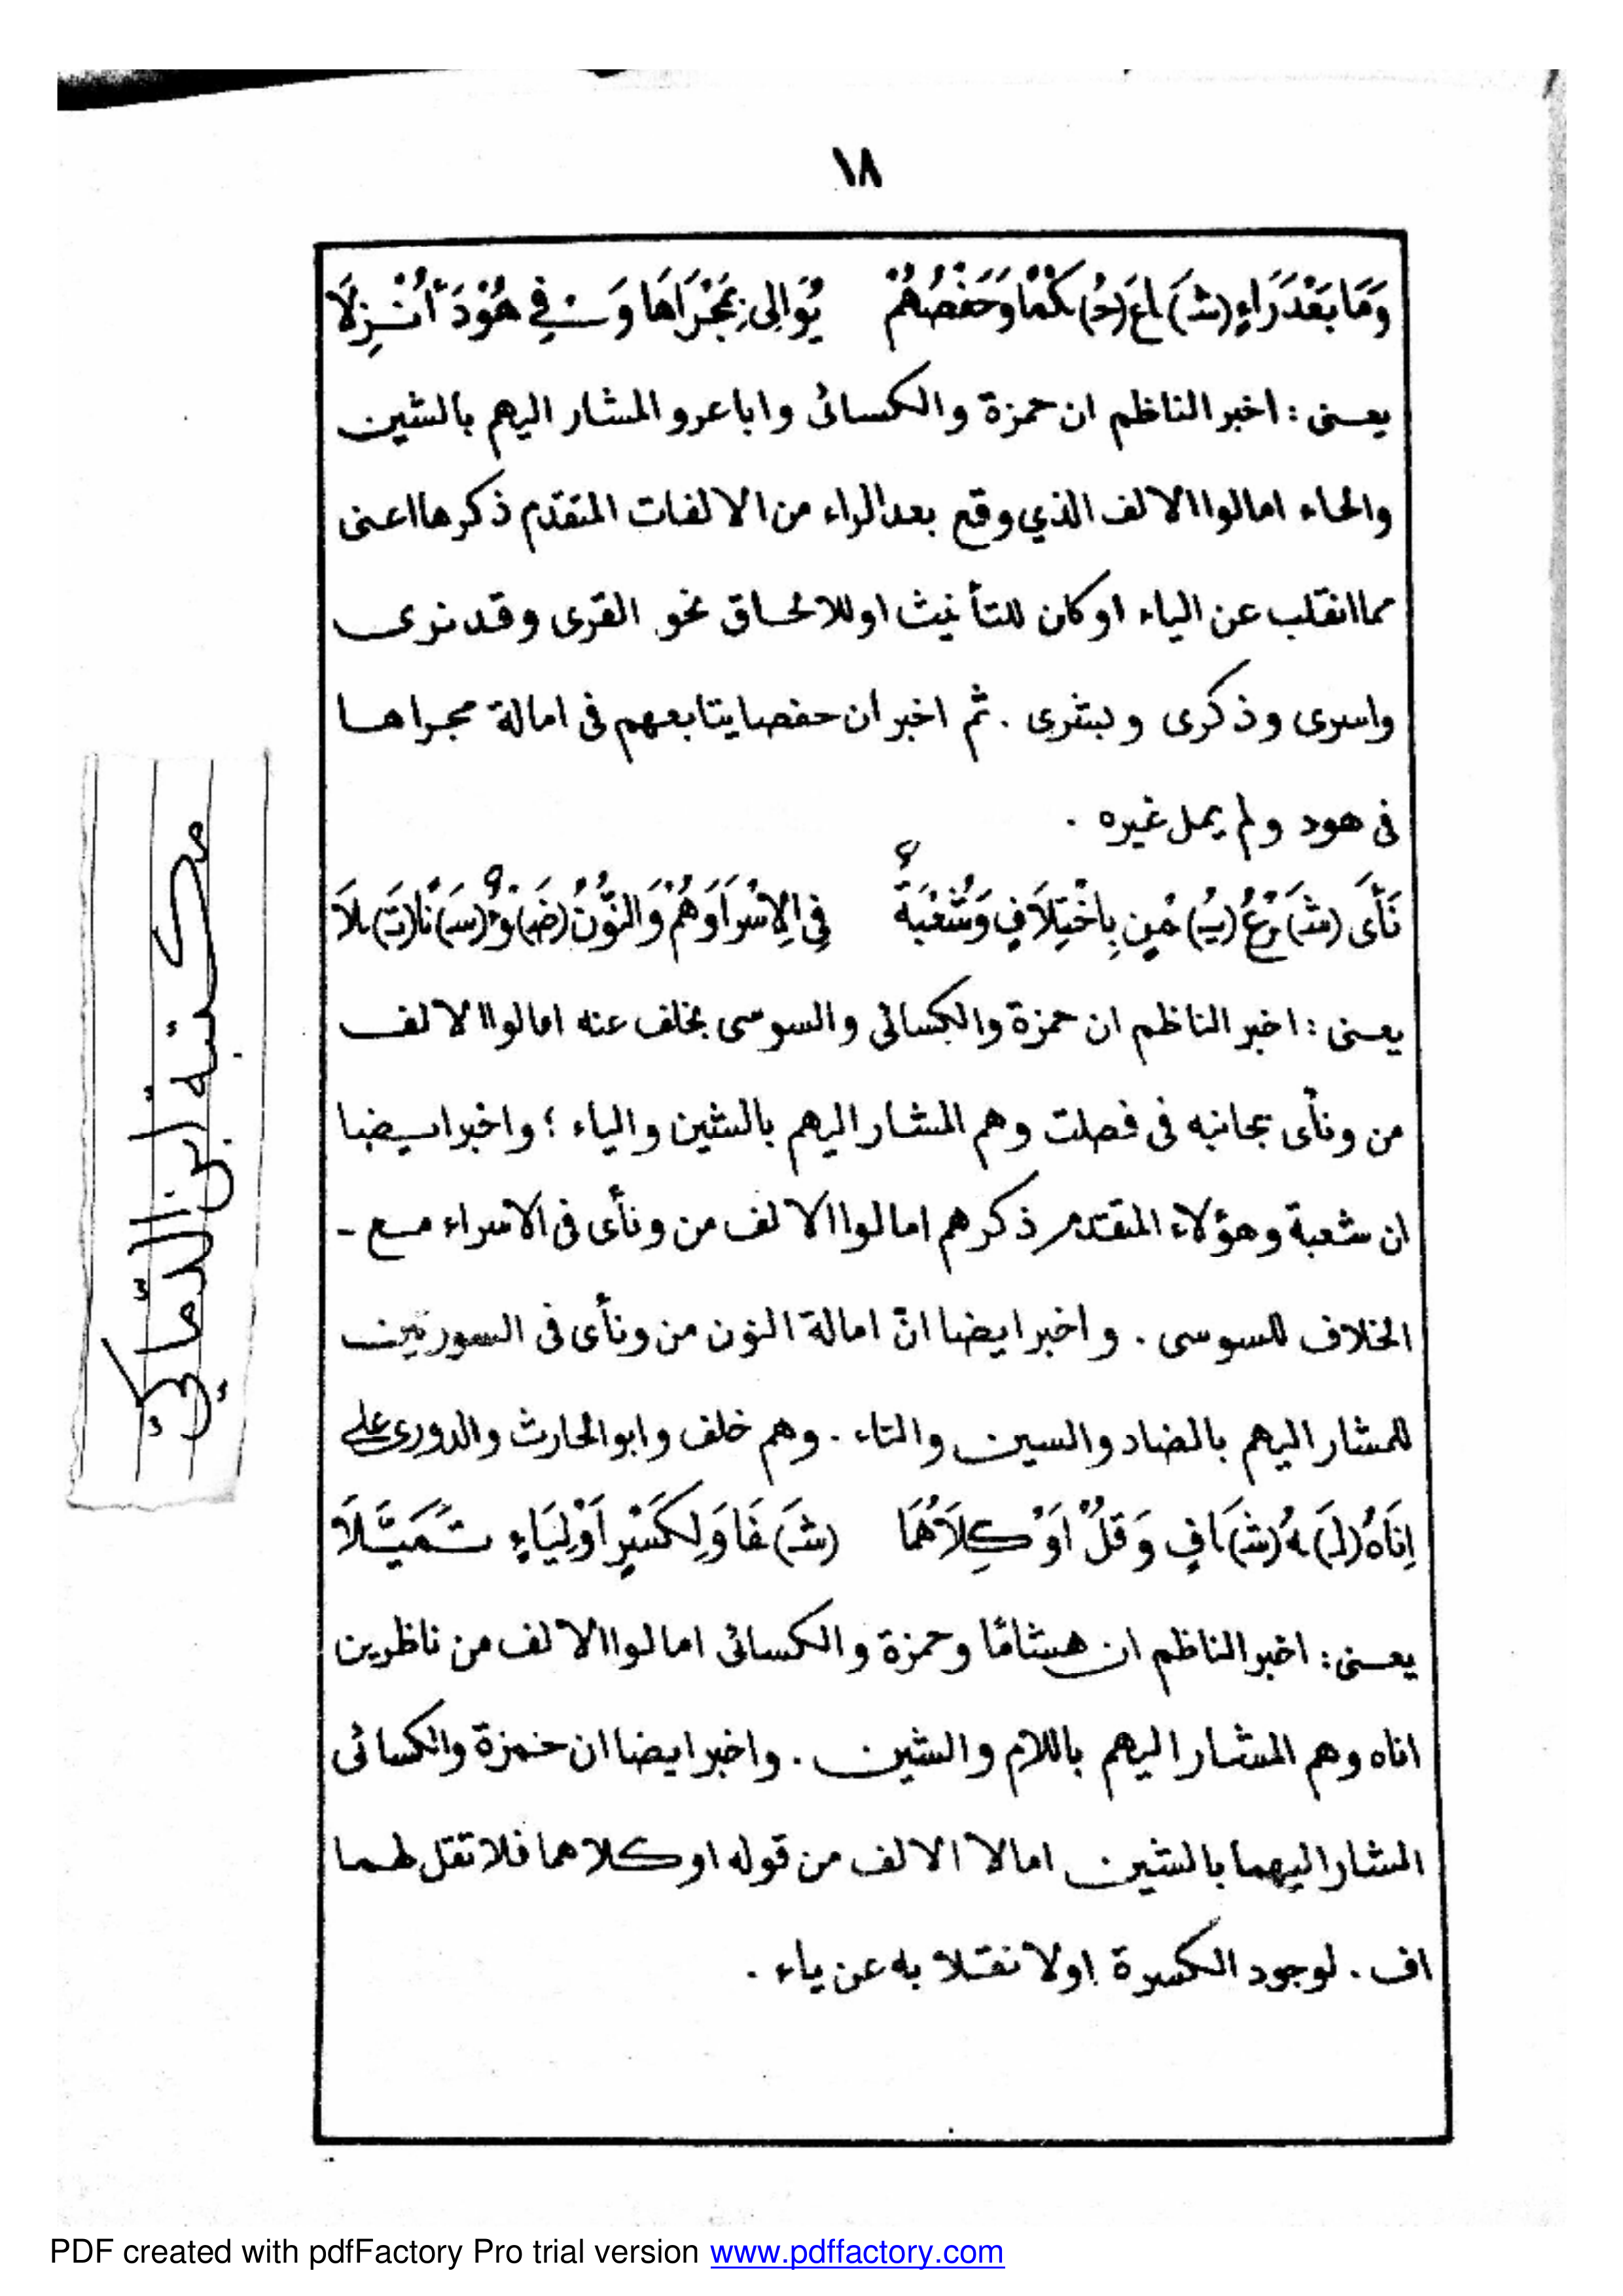 ١٨
وَمَا بَعْدَ رَاءٍ (شَـ)ـاعَ (حُـ)ـكْمًا وَحَفْصُهُمْ يُوَالِى بِمَجْرَاهَا وَفِي هُوْدَ أُنْزِلَا
يعنى : اخبر الناظم ان حمزة والكسائى وابا عمرو المشار اليهم بالشين
والحاء امالوا الالف الذي وقع بعد الراء من الالفات المتقدم ذكرها اعنى
مما انقلب عن الياء او كان للتأنيث او للالحاق نحو القرى وقد نرى
واسرى وذكرى وبشرى . ثم اخبر ان حفصا يتابعهم فى امالة مجراها
فى هود ولم يمل غيره .
نَأَى (شَـ)ـرْعُ (يُـ)ـمْنٍ بِاخْتِلَافٍ وَشُعْبَةٌ فِي الِاسْرَا وَهُمْ وَالنُّوْنُ (ضَـ)ـوْءُ (سَـ)ـنًا (تَـ)ـلَا
يعنى : اخبر الناظم ان حمزة والكسائى والسوسى بخلف عنه امالوا الالف
من ونأى بجانبه فى فصلت وهم المشار اليهم بالشين والياء ؛ واخبر ايضا
ان شعبة وهؤلاء المتقدم ذكرهم امالوا الالف من ونأى فى الاسراء مع -
الخلاف للسوسى . واخبر ايضا انّ امالة النون من ونأى فى السورتين
للمشار اليهم بالضاد والسين والتاء . وهم خلف وابو الحارث والدورى على
اِنَاهُ (لَـ)ـهُ (شَـ)ـافٍ وَقُلْ اَوْ كِلَاهُمَا (شَـ)ـفَا وَلِكَسْرٍ اَوْ لِيَاءٍ تَمَيَّلَا
يعنى : اخبر الناظم ان هشامًا وحمزة والكسائى امالوا الالف من ناظرين
اناه وهم المشار اليهم باللام والشين . واخبر ايضا ان حمزة والكسائى
المشار اليهما بالشين امالا الالف من قوله او كلاهما فلا تقل لهما
اف . لوجود الكسرة او لانقلابه عن ياء .
مكتبة ابن
PDF created with pdfFactory Pro trial version www.pdffactory.com